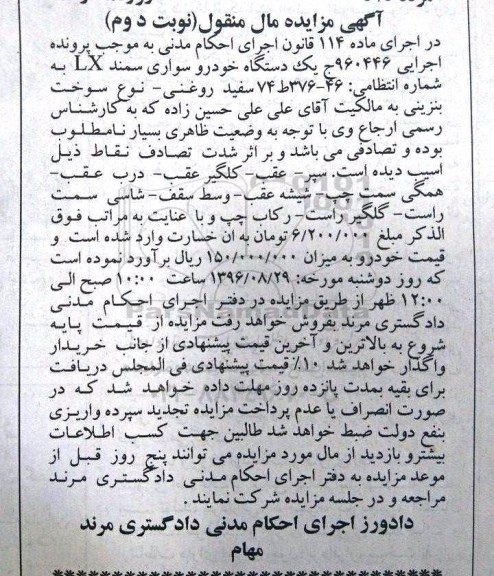 آگهی مزایده مال منقول(نوبت دوم)
در اجرای ماده ۱۱۴ قانون اجرای احکام مدنی به موجب پرونده
اجرایی ۹۶۰۴۴۶ج یك دستگاه خودرو سواری سمند LX به
شماره انتظامی: ۴۶-۳۷۶ط۷۴ سفید روغنی- نوع سوخت
بنزینی به مالکیت آقای علی علی حسین زاده که به کارشناس
رسمی ارجاع وی با توجه به وضعیت ظاهری بسیار نامطلوب
بوده و تصادفی می باشد و بر اثر شدت تصادف نقاط ذیل
اسیب دیده است. سپر- عقب- کلگیر عقب- درب عقب-
همگی سمت چپ- شیشه عقب- وسط سقف- شاسی سمت
راست- گلگیر راست- رکاب چپ و با عنایت به مراتب فوق
الذکر مبلغ ۶/۲۰۰/۰۰۰ تومان به ان خسارت وارد شده است و
قیمت خودرو به میزان ۱۵۰/۰۰۰/۰۰۰ ریال برآورد نموده است
که روز دوشنبه مورخه: ۱۳۹۶/۰۸/۲۹ ساعت ۱۰:۰۰ صبح الی
۱۲:۰۰ ظهر از طریق مزایده در دفتر اجرای احکام مدنی
دادگستری مرند بفروش خواهد رفت مزایده از قیمت پایه
شروع به بالاترین و آخرین قیمت پیشنهادی از جانب خریدار
واگذار خواهد شد ۱۰٪ قیمت پیشنهادی فی المجلس دریافت
برای بقیه بمدت پانزده روز مهلت داده خواهد شد که در
صورت انصراف یا عدم پرداخت مزایده تجدید سپرده واریزی
بنفع دولت ضبط خواهد شد طالبین جهت کسب اطلاعات
بیشترو بازدید از مال مورد مزایده می توانند پنج روز قبل از
موعد مزایده به دفتر اجرای احکام مدنی دادگستری مرند
مراجعه و در جلسه مزایده شرکت نمایند.
دادورز اجرای احکام مدنی دادگستری مرند
مهام